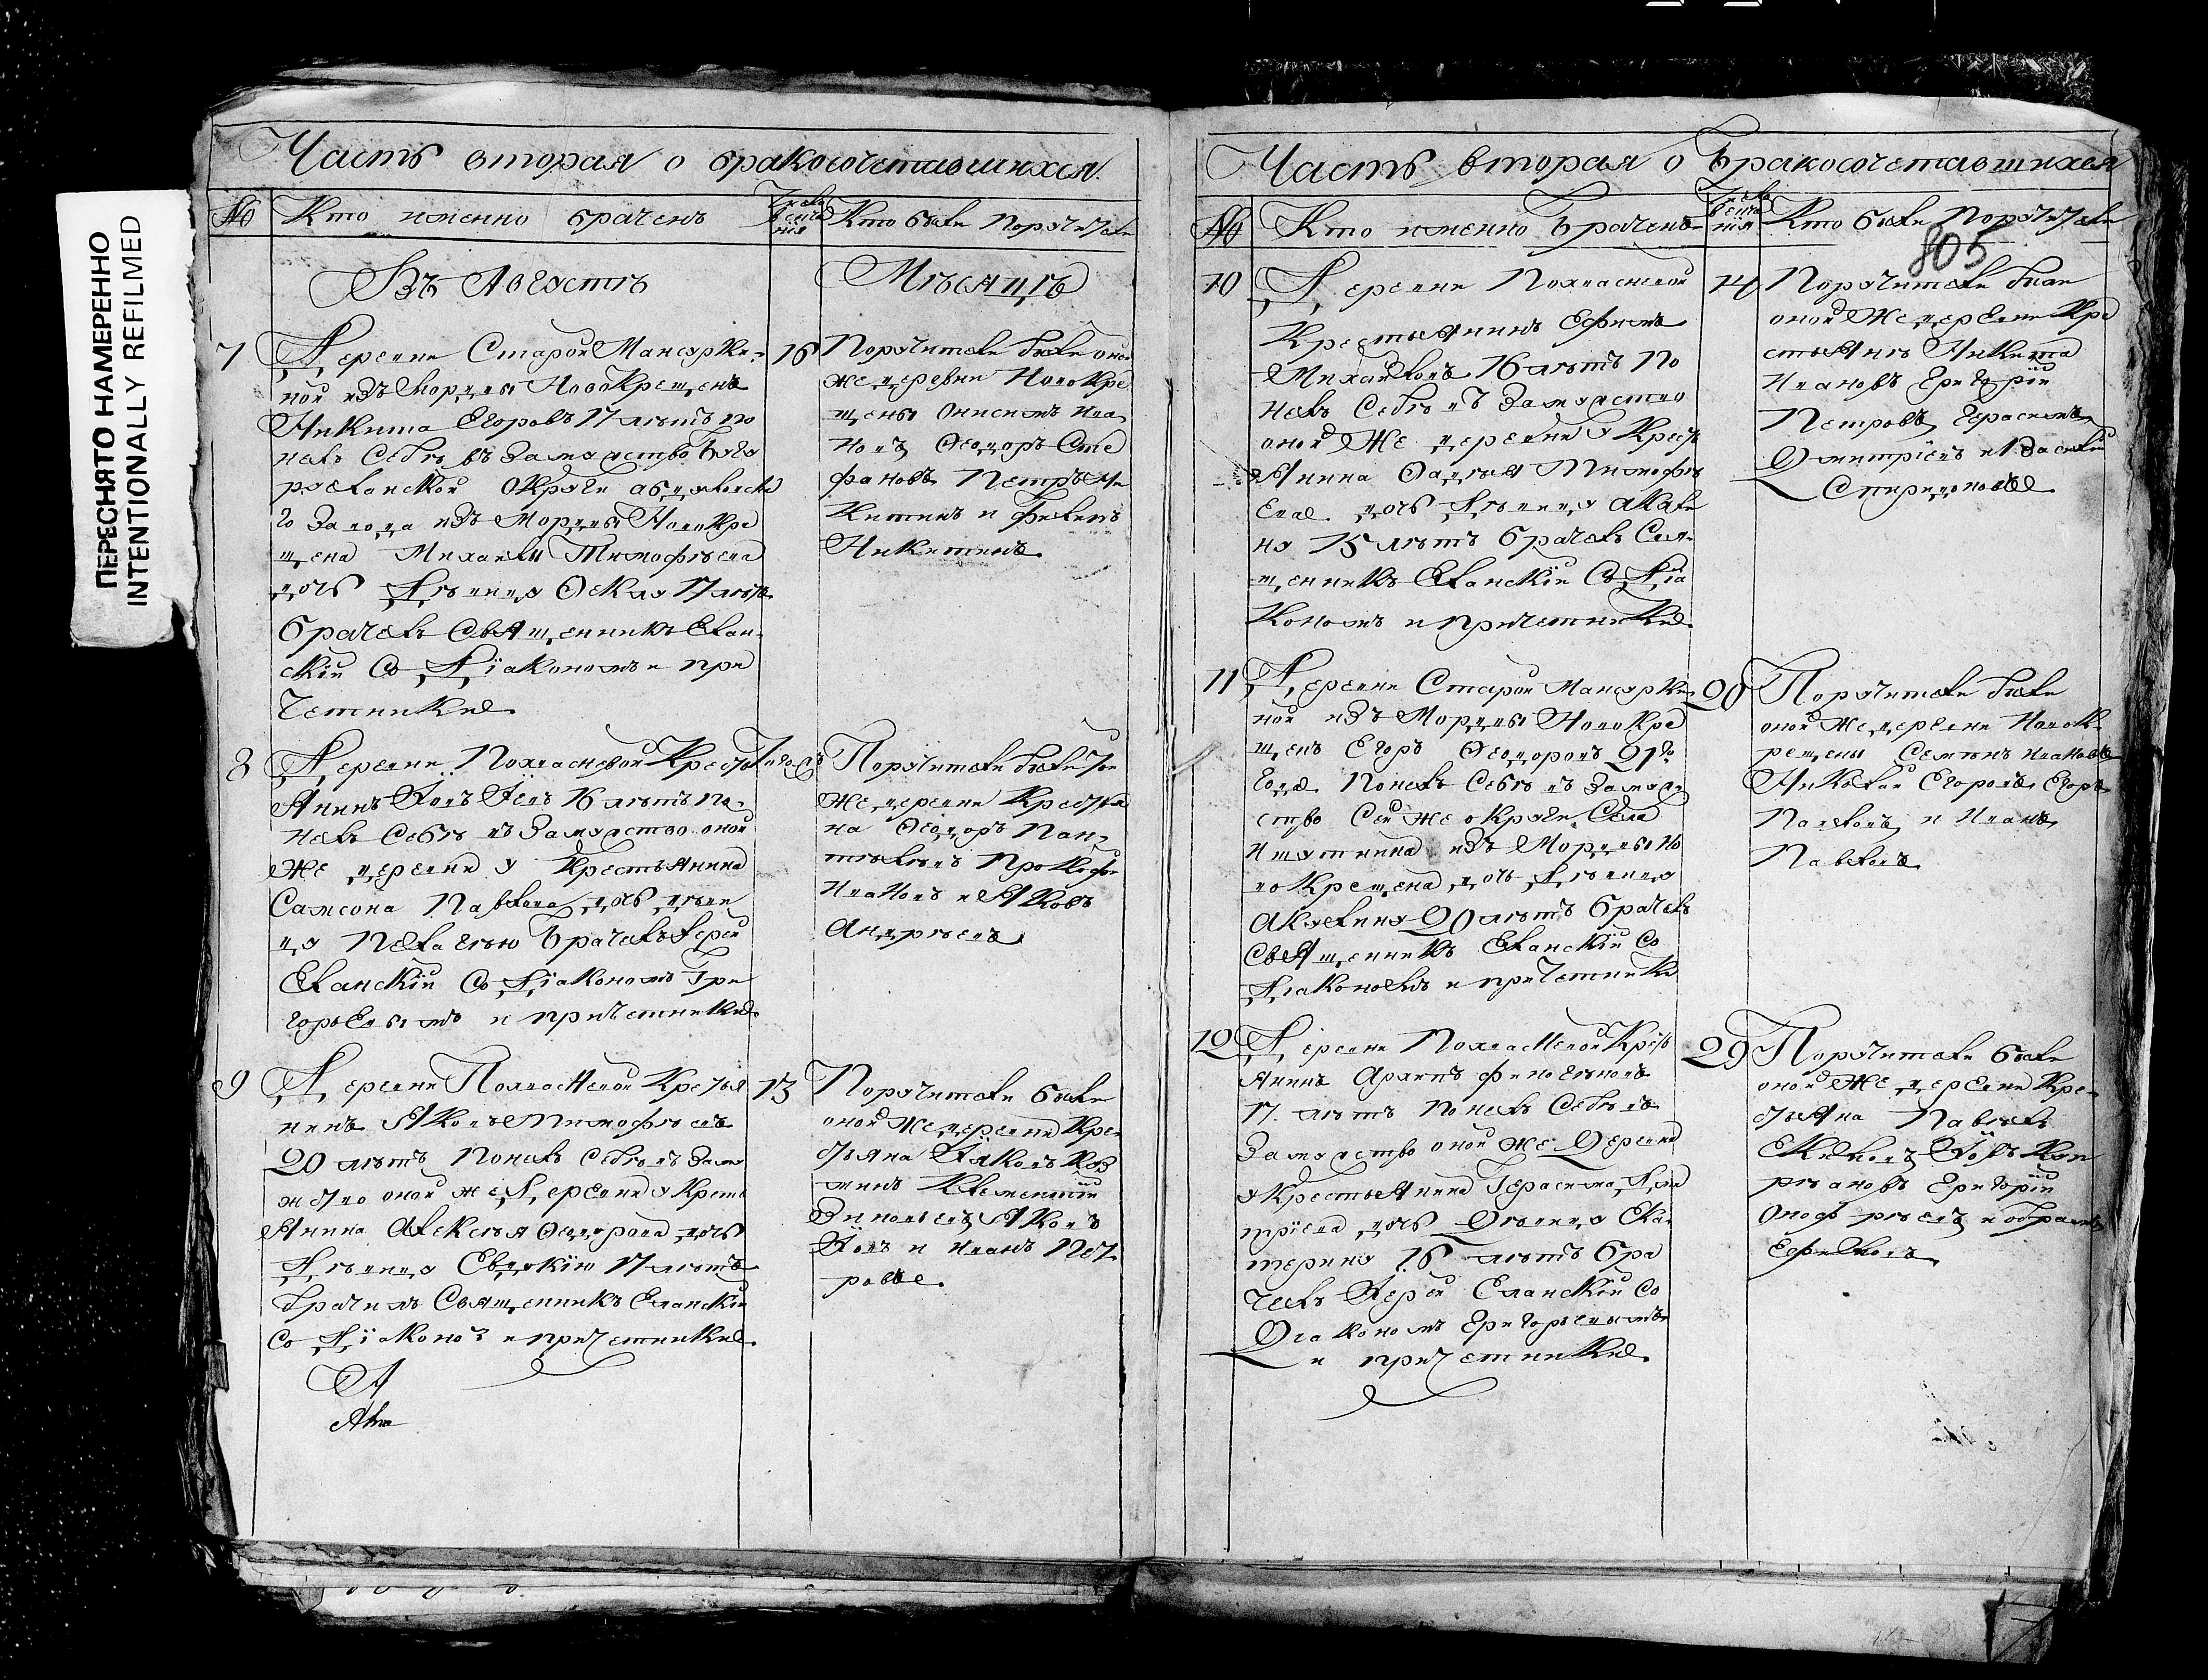 ПЕРЕСНЯТО НАМЕРЕННО
INTENTIONALLY REFILMED
Часть вторая о бракосочетавшихся
№ Кто именно бра­ченъ Число венчания Кто были поручители
Въ Августѣ Мѣсяцѣ
7
Деревни Старой Мансурки-
ной изъ Мордвы Новокрещенъ
Никита Егоровъ 17 лѣтъ по
нелъ Себѣ въ Замужство Бугу
русланской округи
го Завода изъ Мордвы Новокре
щена Михаилы Тимофѣева
дочь Дѣвицу Феклу 17 лѣтъ
брачелъ Священникъ Елан-
скій Со Діакономъ и при
четники
16
Поручители были оной
же деревни Новокре
щены Онисимъ Ива
новъ Феодоръ Сте
фановъ Петръ Ни
китинъ и Филипъ
Никитинъ
8
Деревни Похвасневой Кресть
янинъ 16 лѣтъ по-
нелъ Себѣ въ Замужство оной
же деревни у Крестьянина
Самсона Павлова дочь дѣви
цу Пелагѣю брачелъ Іерей
Еланскій Со Діакономъ Гри
горьевымъ и причетники
Поручители были той
же деревни Крестья
на Феодоръ Пан-
тѣлѣевъ Прокофей
Ивановъ и Яковъ
Андрѣевъ
9
Деревни Похвасневой Крестья
нинъ Яковъ Тимофѣевъ
20 лѣтъ Понелъ Себѣ въ Заму
жство оной же Деревни у Кресть
янина Алексѣя Феодорова дочь
Дѣвицу Евдокію 17 лѣтъ
брачилъ Священникъ Еланскій
Со Діаконо и причетники
13
Поручители были
оной же деревни Кре-
стьяна Яковъ Коз
минъ Клементій
Зиновьевъ Яковъ
и Иванъ Пет
ровы
Часть вторая о Бракосочетавшихся
№ Кто именно Браченъ Число венчания Кто были Поручители
805
10
Деревни Похвасневой
Крестьянинъ Ефимъ
Михайловъ 16 лѣтъ По
нелъ Себѣ въ Замужство
оной же деревни у Кресть
янина Фадѣя Тимофѣ
ева дочь Дѣвицу Акули
ну 15 лѣтъ брачелъ Свя-
щенникъ Еланскій Со Діа
кономъ и причетники
14
Поручители были
оной же деревни Кре
стьянъ Никита
Ивановъ Григорій
Петровъ Герасимъ
Дмитріевъ и Василій
Спиридоновы
11
Деревни Старой Мансурки
ной изъ Мордвы Новокре
щенъ Егоръ Феодоровъ 21го
года Понелъ Себѣ въ Замуж
ство Сей же округи Села
Ишуткина изъ Мордвы Но
вокрещена дочь Дѣвицу
Акулину 20 лѣтъ брачелъ
Священникъ Еланскій Со
Діакономъ и причетники
20
Поручители были
оной же деревни Новок-
рещены Семенъ Ивановъ
Николай Егоровъ Егоръ
Павловъ и Иванъ
Павловъ
12
Деревни Похвасневой Кресть
янинъ Архипъ Финогѣновъ
17 лѣтъ Понелъ Себѣ въ
Замужство оной же Деревни
у Крестьянина Герасима Дми
трiева дочь Дѣвицу Ека-
терину 16 лѣтъ бра
челъ Іерей Еланскій Со
Діакономъ Григорьевымъ
и причетники
29
Поручители были
оной же деревни Кре-
стьяна Павелъ
Куп
рѣяновъ Григорій
Онофрѣевъ и
Ефимовъ